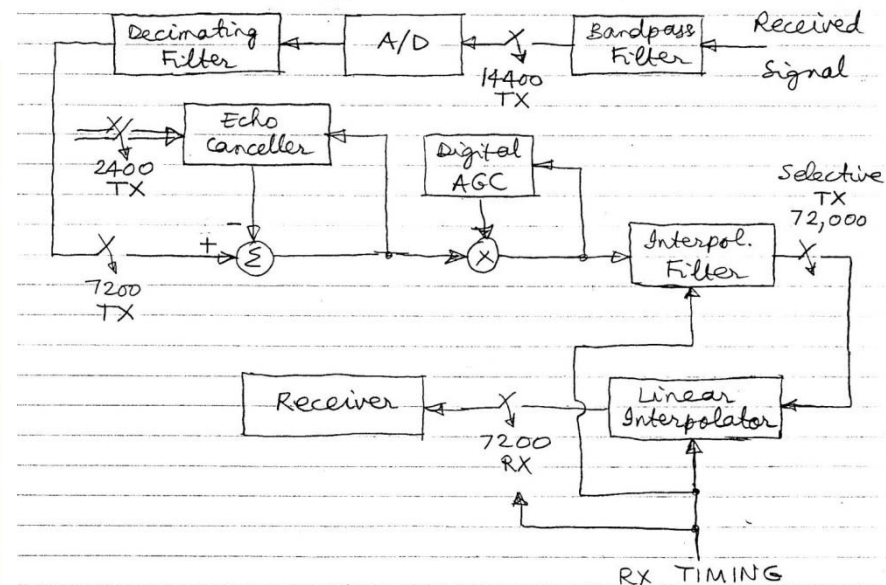 Decimating
Filter
A/D
14400
TX
Bandpass
Filter
Received
Signal
2400
TX
Echo
Canceller
Digital
AGC
Selective
TX
72,000
7200
TX
+
-
Σ
X
Interpol.
Filter
Receiver
7200
RX
Linear
Interpolator
RX TIMING